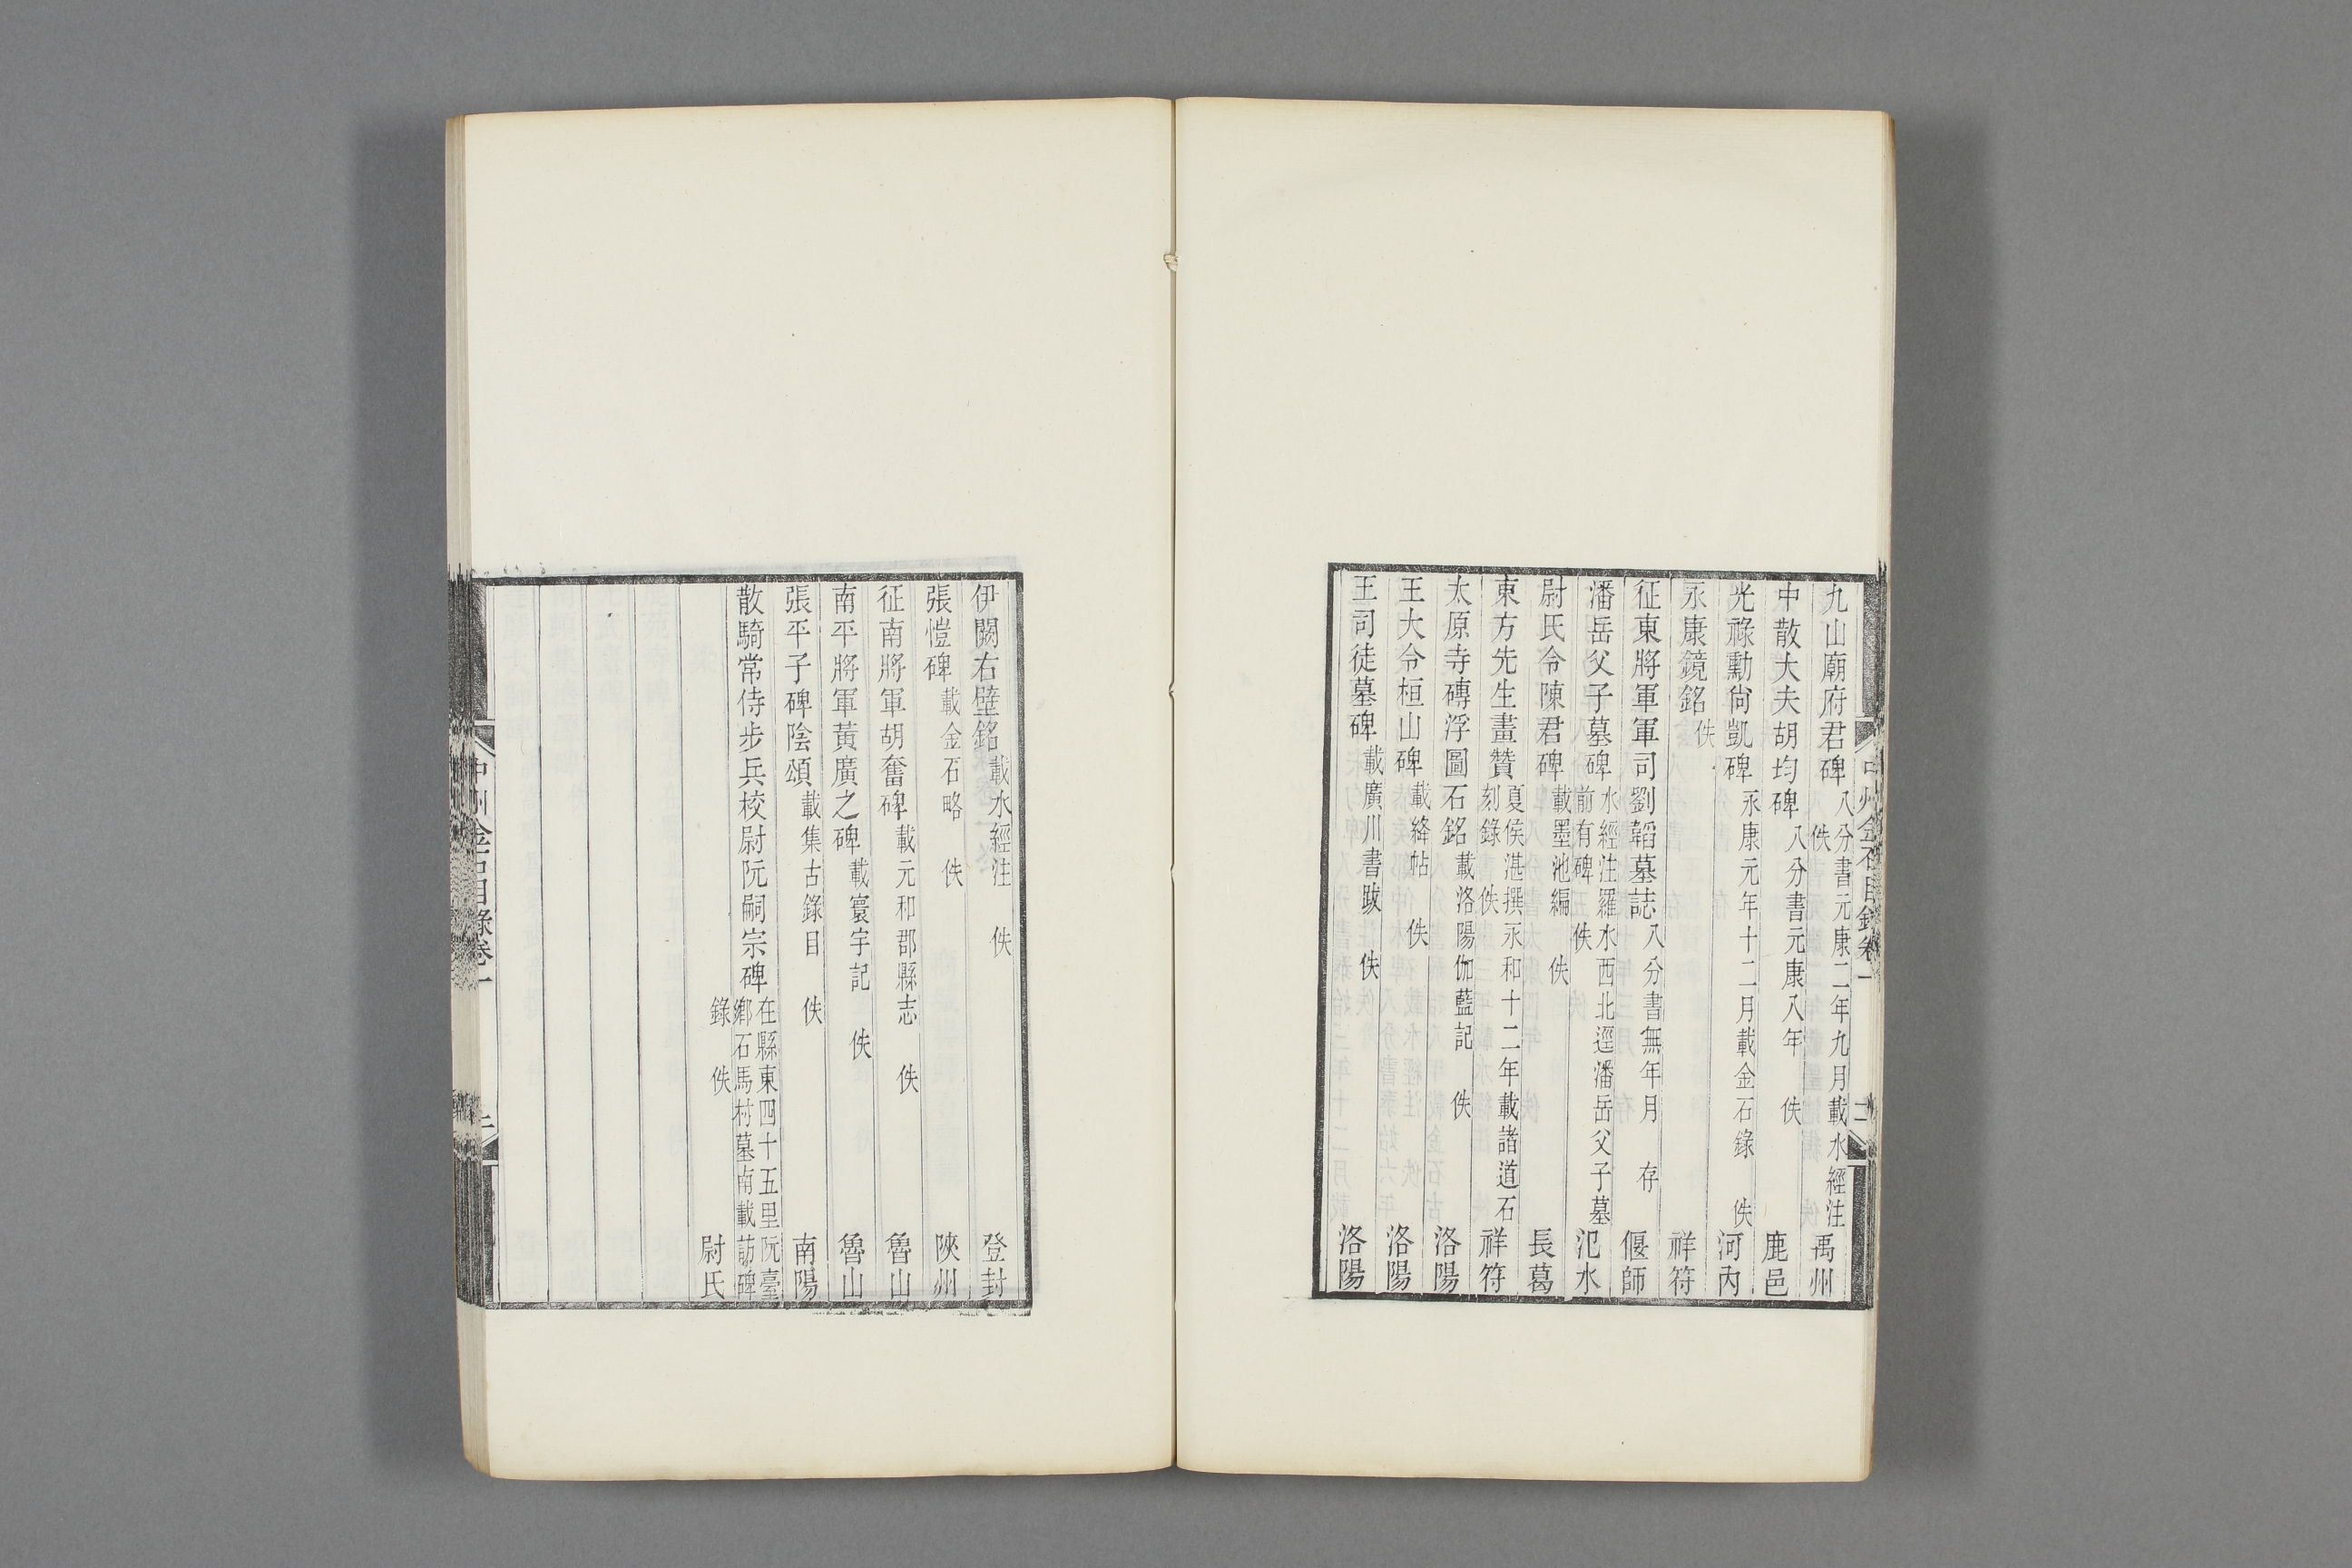 九山廟府君碑八分書元康二年九月載水經注佚 禹州
中散大夫胡均碑八分書元康八年 佚 鹿邑
光祿勳尙凱碑永康元年十二月載金石錄 佚 河內
永康鏡銘佚 祥符
征東將軍軍司劉韜墓誌八分書無年月 存 偃師
潘岳父子墓碑水經注羅水西北逕潘岳父子墓前有碑 佚 汜水
尉氏令陳君碑載墨池編 佚 長葛
東方先生畫贊夏侯湛撰永和十二年載諸道石刻錄 佚 祥符
太原寺磚浮圖石銘載洛陽伽藍記 佚 洛陽
王大令桓山碑載絳帖 佚 洛陽
王司徒墓碑載廣川書跋 佚 洛陽
伊闕右壁銘載水經注 佚 登封
張愷碑載金石略 佚 陝州
征南將軍胡奮碑載元和郡縣志 佚 魯山
南平將軍黃廣之碑載寰宇記 佚 魯山
張平子碑陰頌載集古錄目 佚 南陽
散騎常侍步兵校尉阮嗣宗碑在縣東四十五里阮臺鄉石馬村墓南載訪碑
錄 佚 尉氏
中州金石目錄卷一 二